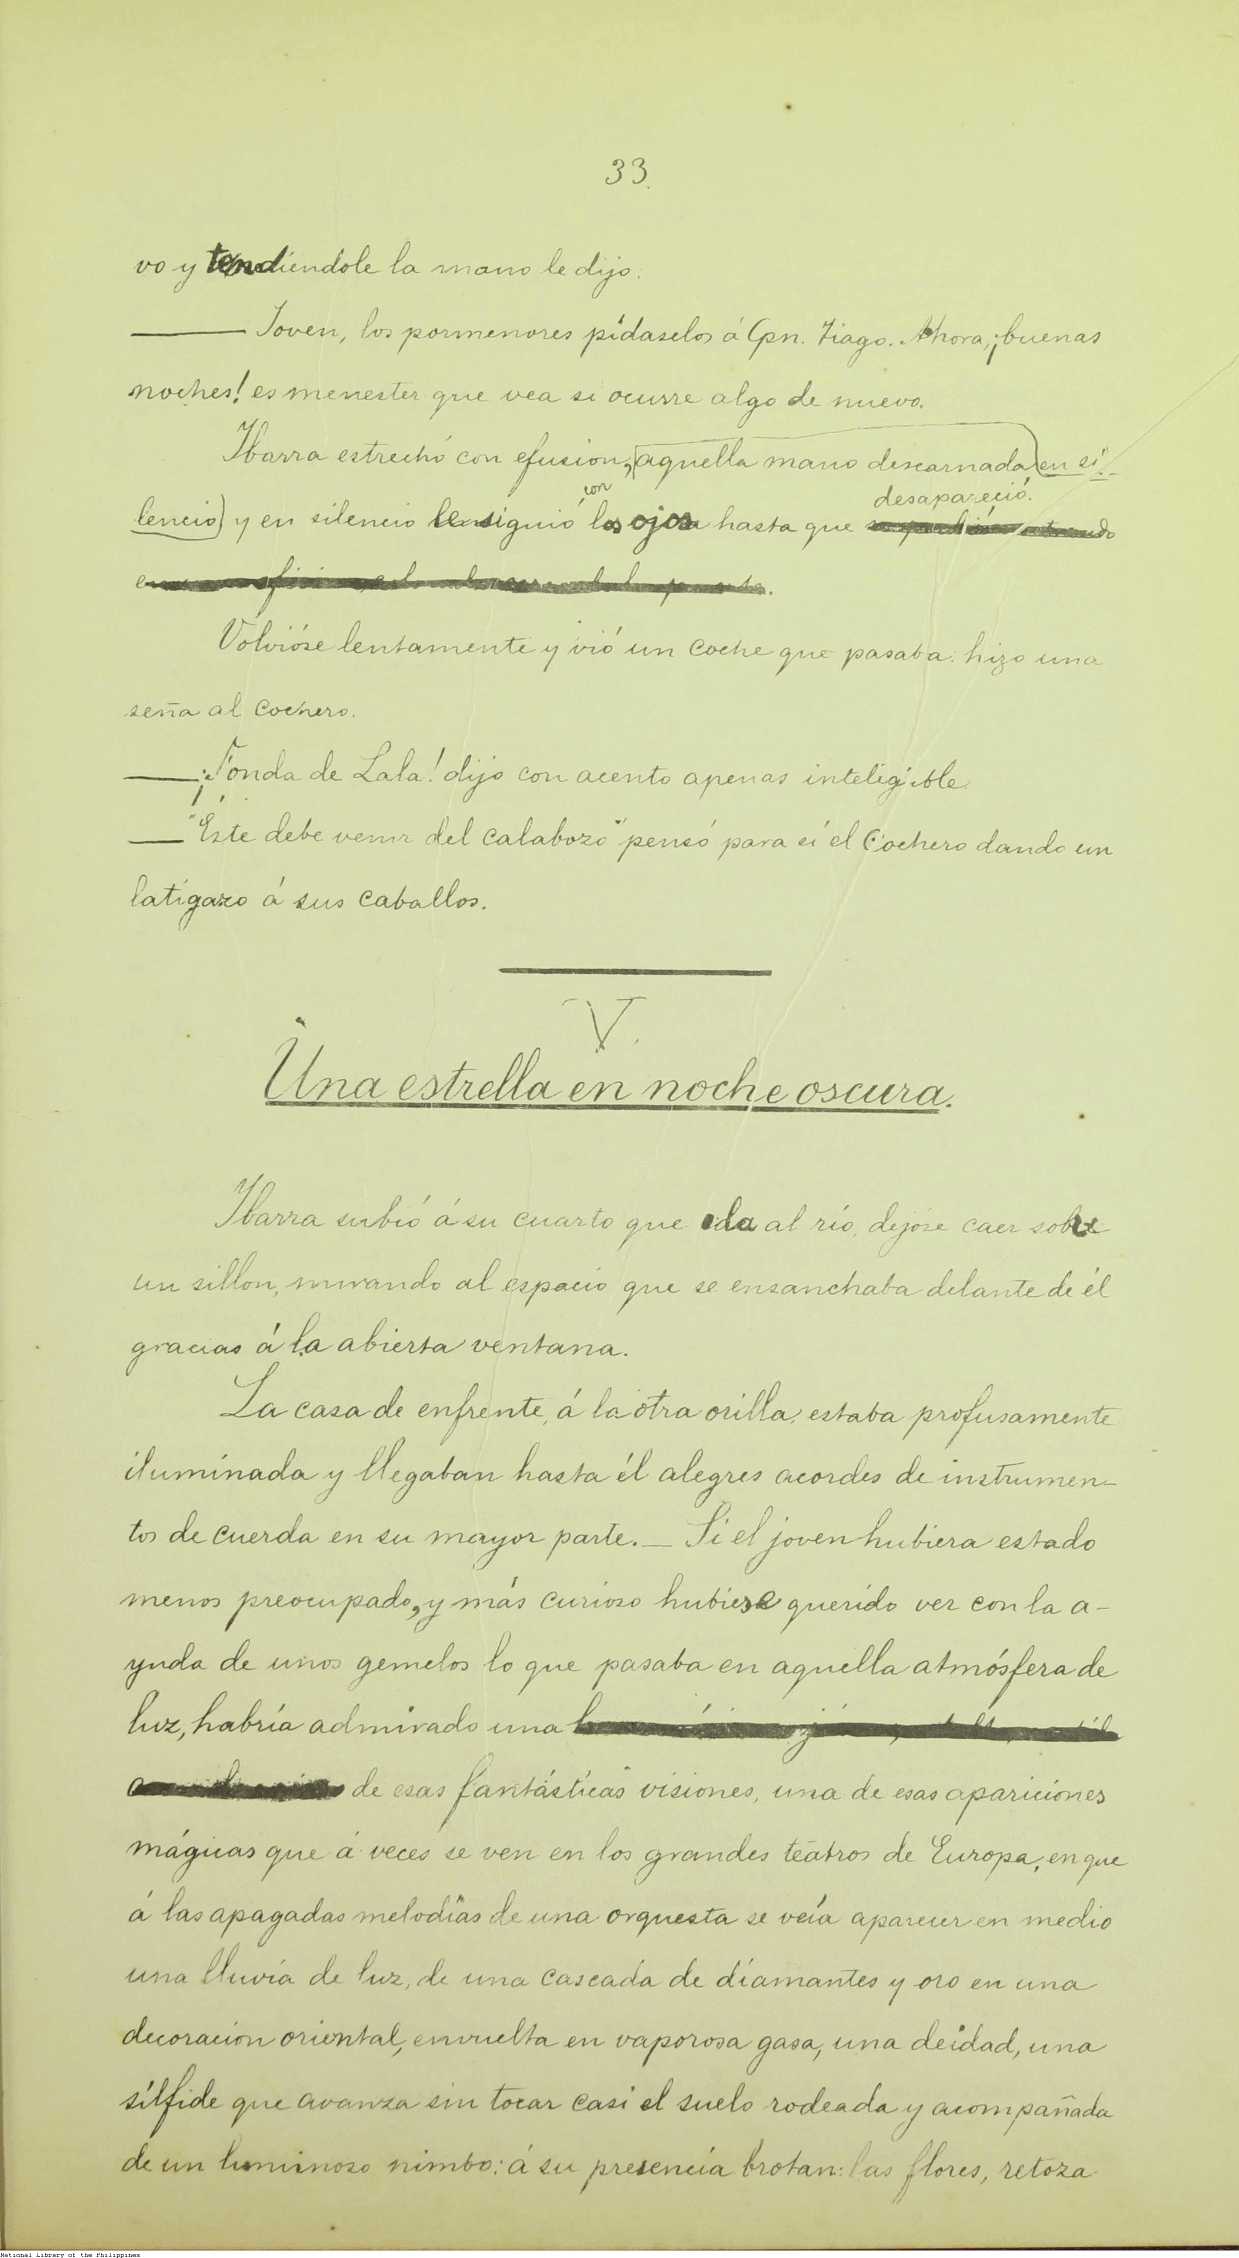 33.
vo y tendiéndole la mano le dijo:
— Joven, los pormenores pídaselos á Cpn. Tiago. Ahora, ¡buenas
noches! es menester que vea si ocurre algo de nuevo.
Ibarra estrechó con efusion, aquella mano descarnada en si-
desapareció.
con
lencio y en silencio le siguió los ojos hasta que
Volvióse lentamente y vió un coche que pasaba: hizo una
seña al cochero.
— ¡Fonda de Lala! dijo con acento apenas inteligible.
— "Éste debe venir del calabozo" pensó para sí el cochero dando un
latigazo á sus caballos.
V.
Una estrella en noche oscura.
Ibarra subió á su cuarto que da al río, dejóse caer sobre
un sillon, mirando al espacio que se ensanchaba delante de él
gracias á la abierta ventana.
La casa de enfrente, á la otra orilla, estaba profusamente
iluminada y llegaban hasta él alegres acordes de instrumen-
tos de cuerda en su mayor parte. — Si el joven hubiera estado
menos preocupado, y más curioso hubiese querido ver con la a-
yuda de unos gemelos lo que pasaba en aquella atmósfera de
luz, habría admirado una
de esas fantásticas visiones, una de esas apariciones
mágicas que á veces se ven en los grandes teatros de Europa, en que
á las apagadas melodías de una orquesta se veía aparecer en medio
una lluvia de luz, de una cascada de diamantes y oro en una
decoracion oriental, envuelta en vaporosa gasa, una deidad, una
sílfide que avanza sin tocar casi el suelo rodeada y acompañada
de un luminoso nimbo: á su presencia brotan las flores, retoza
National Library of the Philippines